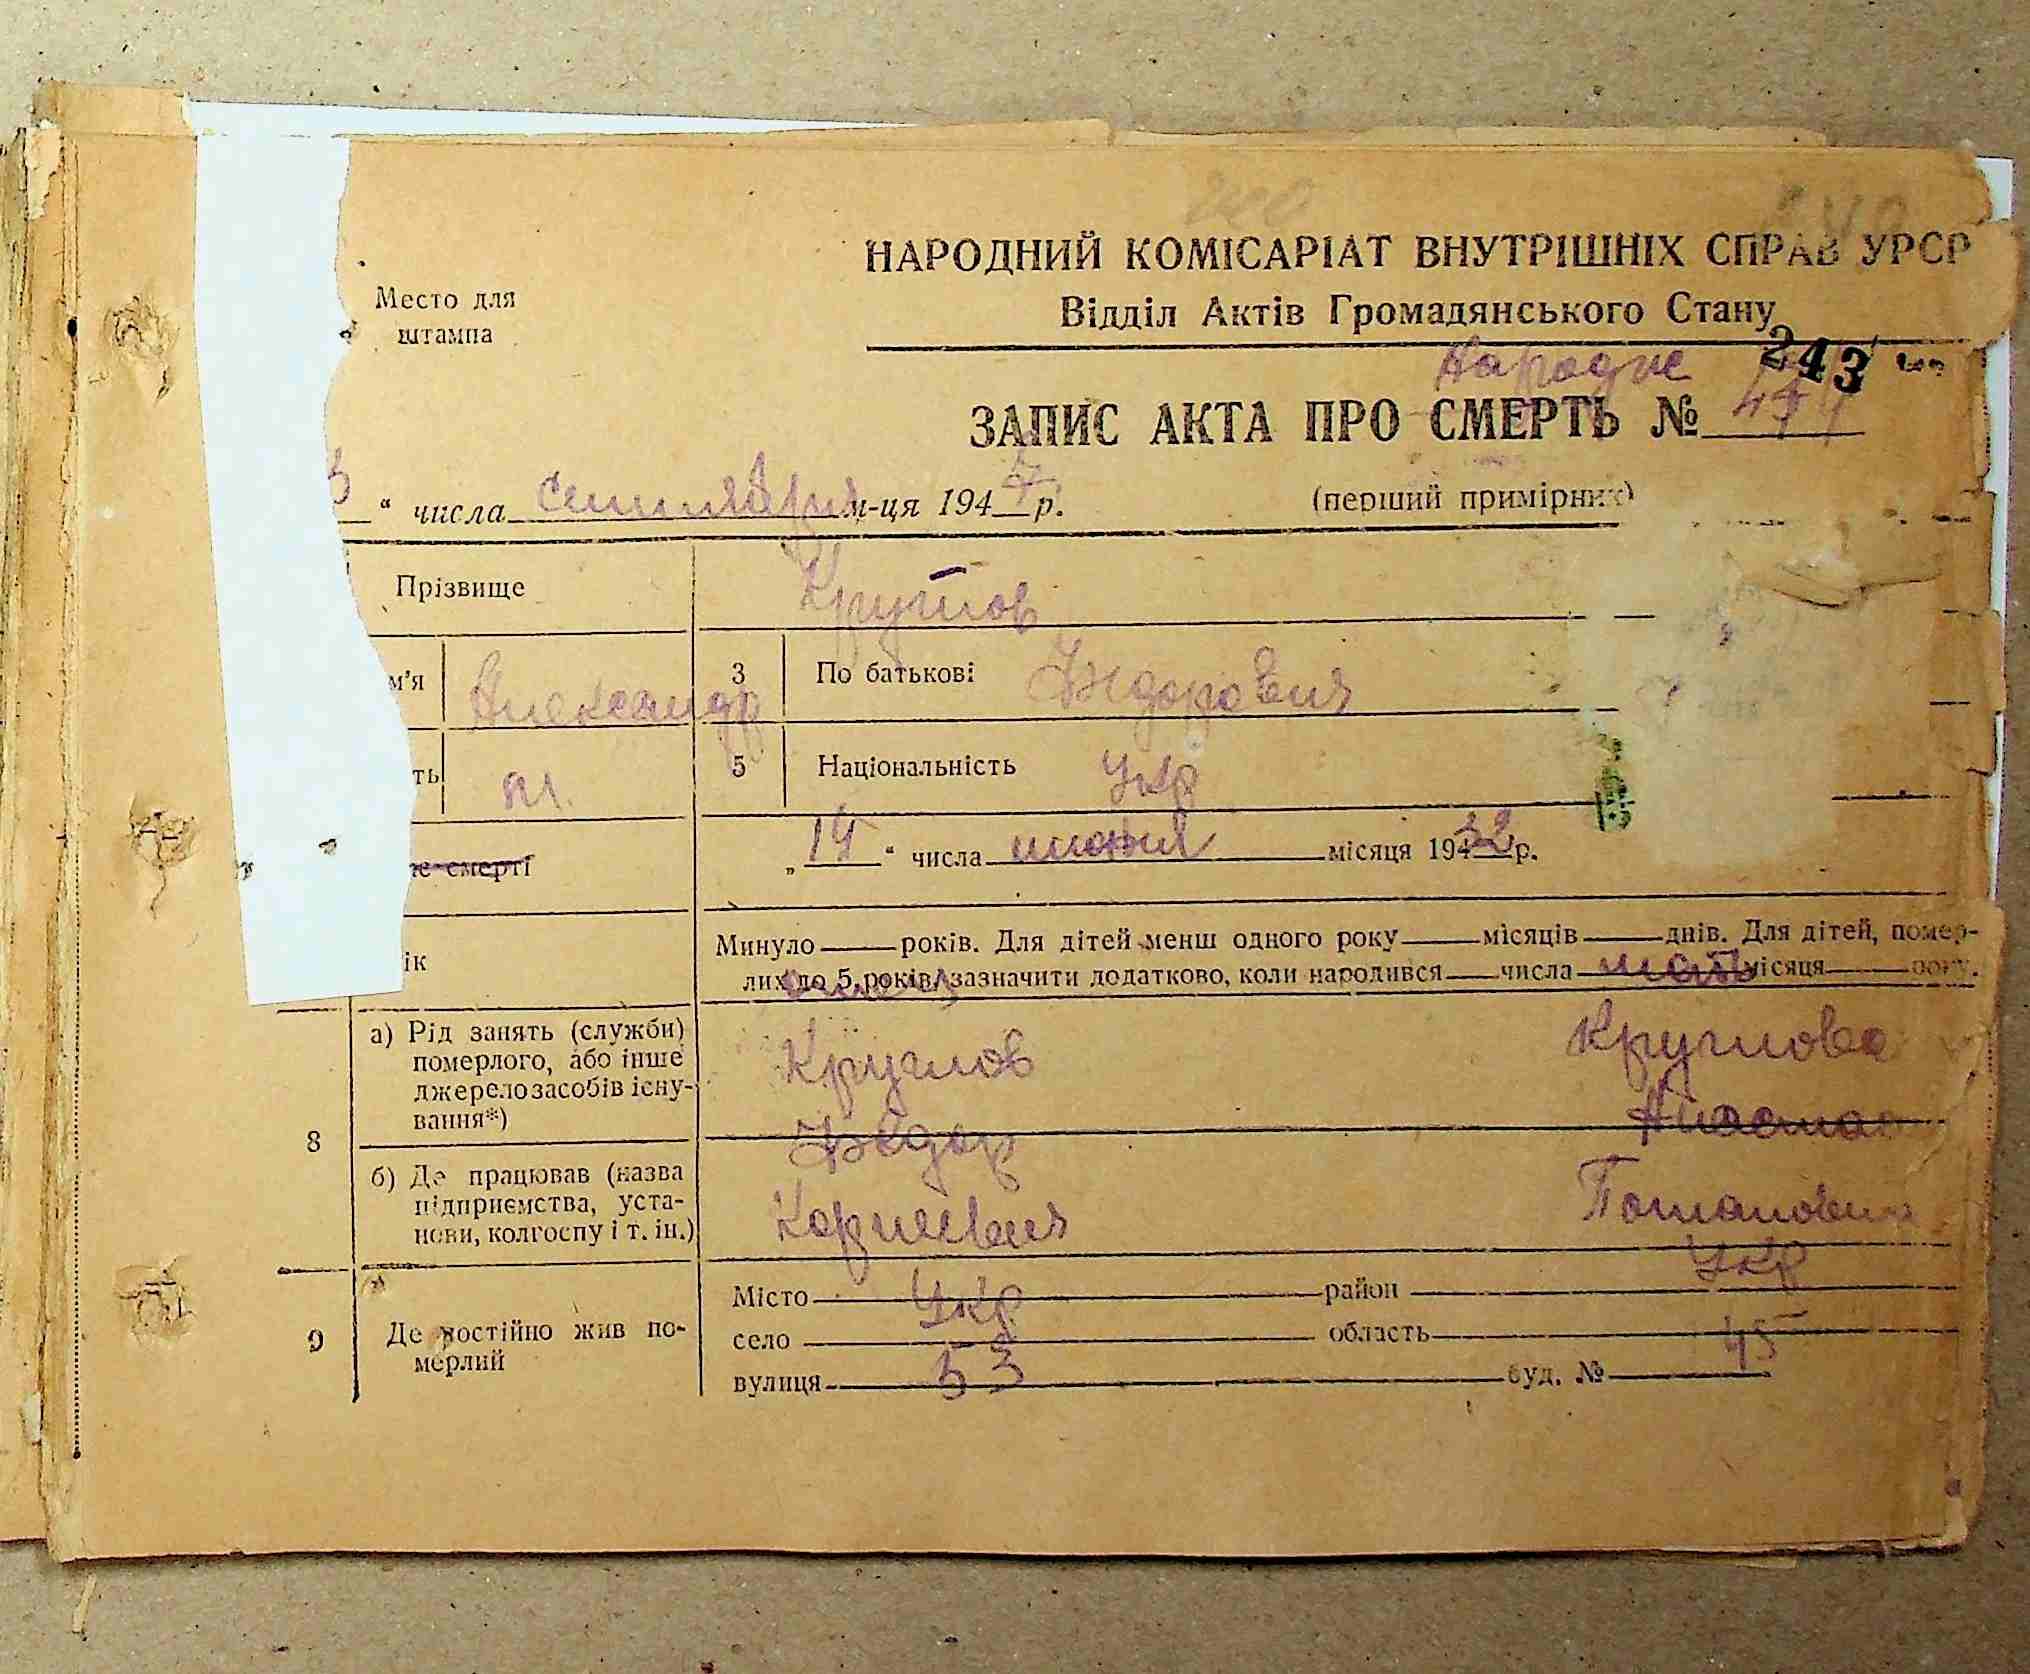 НАРОДНИЙ КОМІСАРІАТ ВНУТРІШНІХ СПРАВ УРСР
Место для
штампа
Відділ Актів Громадянського Стану
243
ЗАПИС АКТА ПРО СМЕРТЬ №
“ числа сентября м-ця 1947 р.
(перший примірник)
Прізвище Круглов
м'я Александр 3 По батькові Федорович
ть м. 5 Національність Укр
є смерті „ 14 “ числа июня місяця 1932 р.
ік Минуло року років. Для дітей менш одного року місяців днів. Для дітей, помер-
лих до 5 років, зазначити додатково, коли народився числа мать місяця року.
отец
8 а) Рід занять (служби)
померлого, або інше
джерело засобів існу-
вання*)
Круглов Круглова
Федор Анастас
б) Де працював (назва
підприємства, уста-
нови, колгоспу і т. ін.)
Корнеевич Потаповна
9 Де постійно жив по-
мерлий
Місто Укр район Укр
село область
вулиця 53 буд. № 45